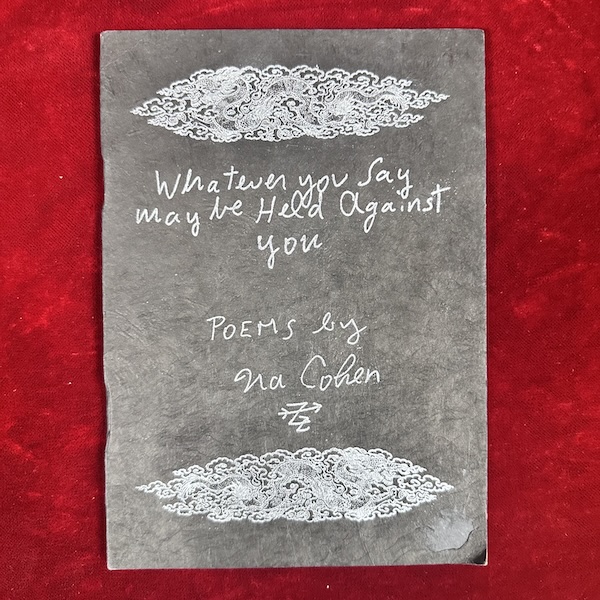 Whatever you Say
may be Held Against
you
POEMS by
Ira Cohen